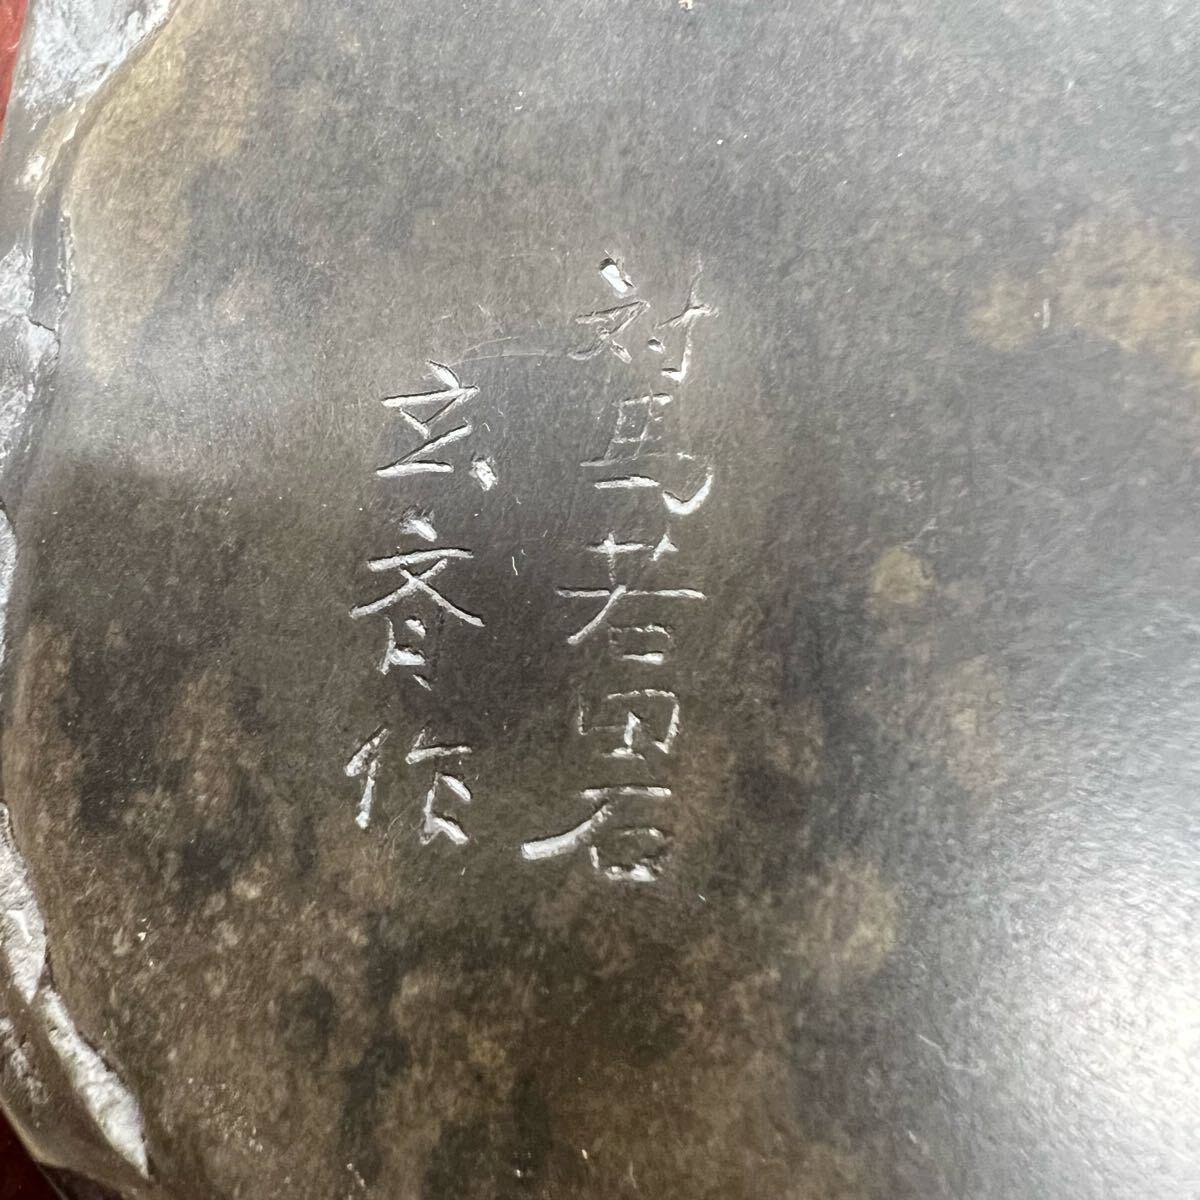 対馬若田石
玄斉作